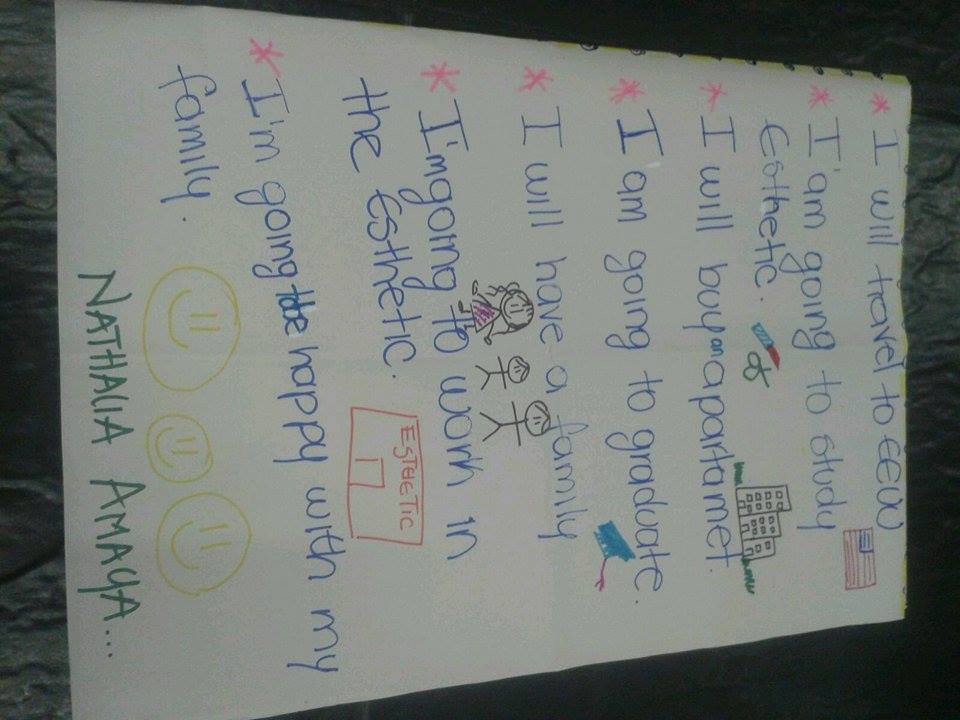 * I will travel to EEUU
* I'am going to study
Esthetic.
* I will buy an apartamet.
* I am going to graduate.
* I will have a family
* I'm going to work in
the Esthetic.
ESTHETIC
* I'm going to be happy with my
family.
NATHALIA AMAYA....